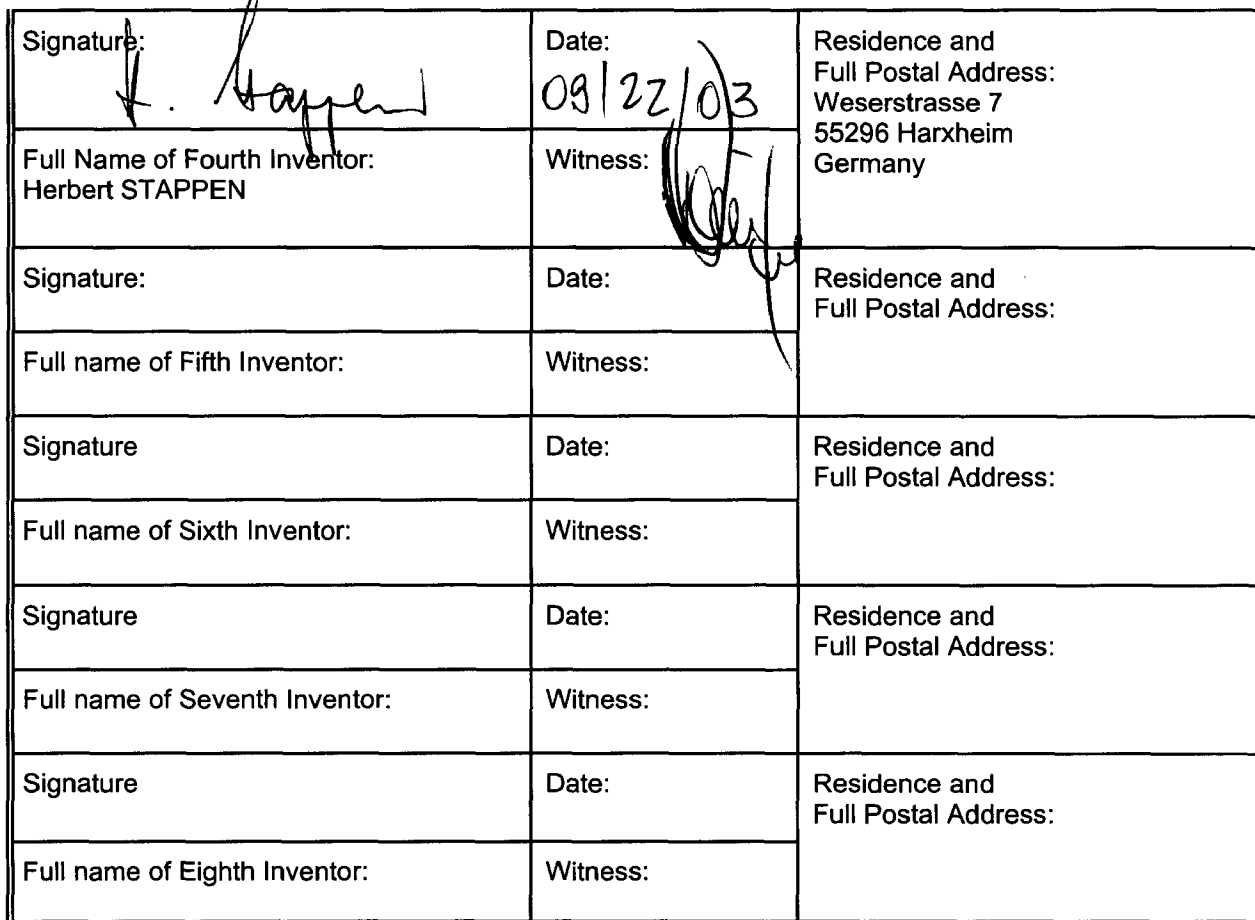 Signature:
H. Stappen
Date:
09/22/03
Residence and
Full Postal Address:
Weserstrasse 7
55296 Harxheim
Germany
Full Name of Fourth Inventor:
Herbert STAPPEN
Witness:
Signature:
Date:
Residence and
Full Postal Address:
Full name of Fifth Inventor:
Witness:
Signature
Date:
Residence and
Full Postal Address:
Full name of Sixth Inventor:
Witness:
Signature
Date:
Residence and
Full Postal Address:
Full name of Seventh Inventor:
Witness:
Signature
Date:
Residence and
Full Postal Address:
Full name of Eighth Inventor:
Witness: